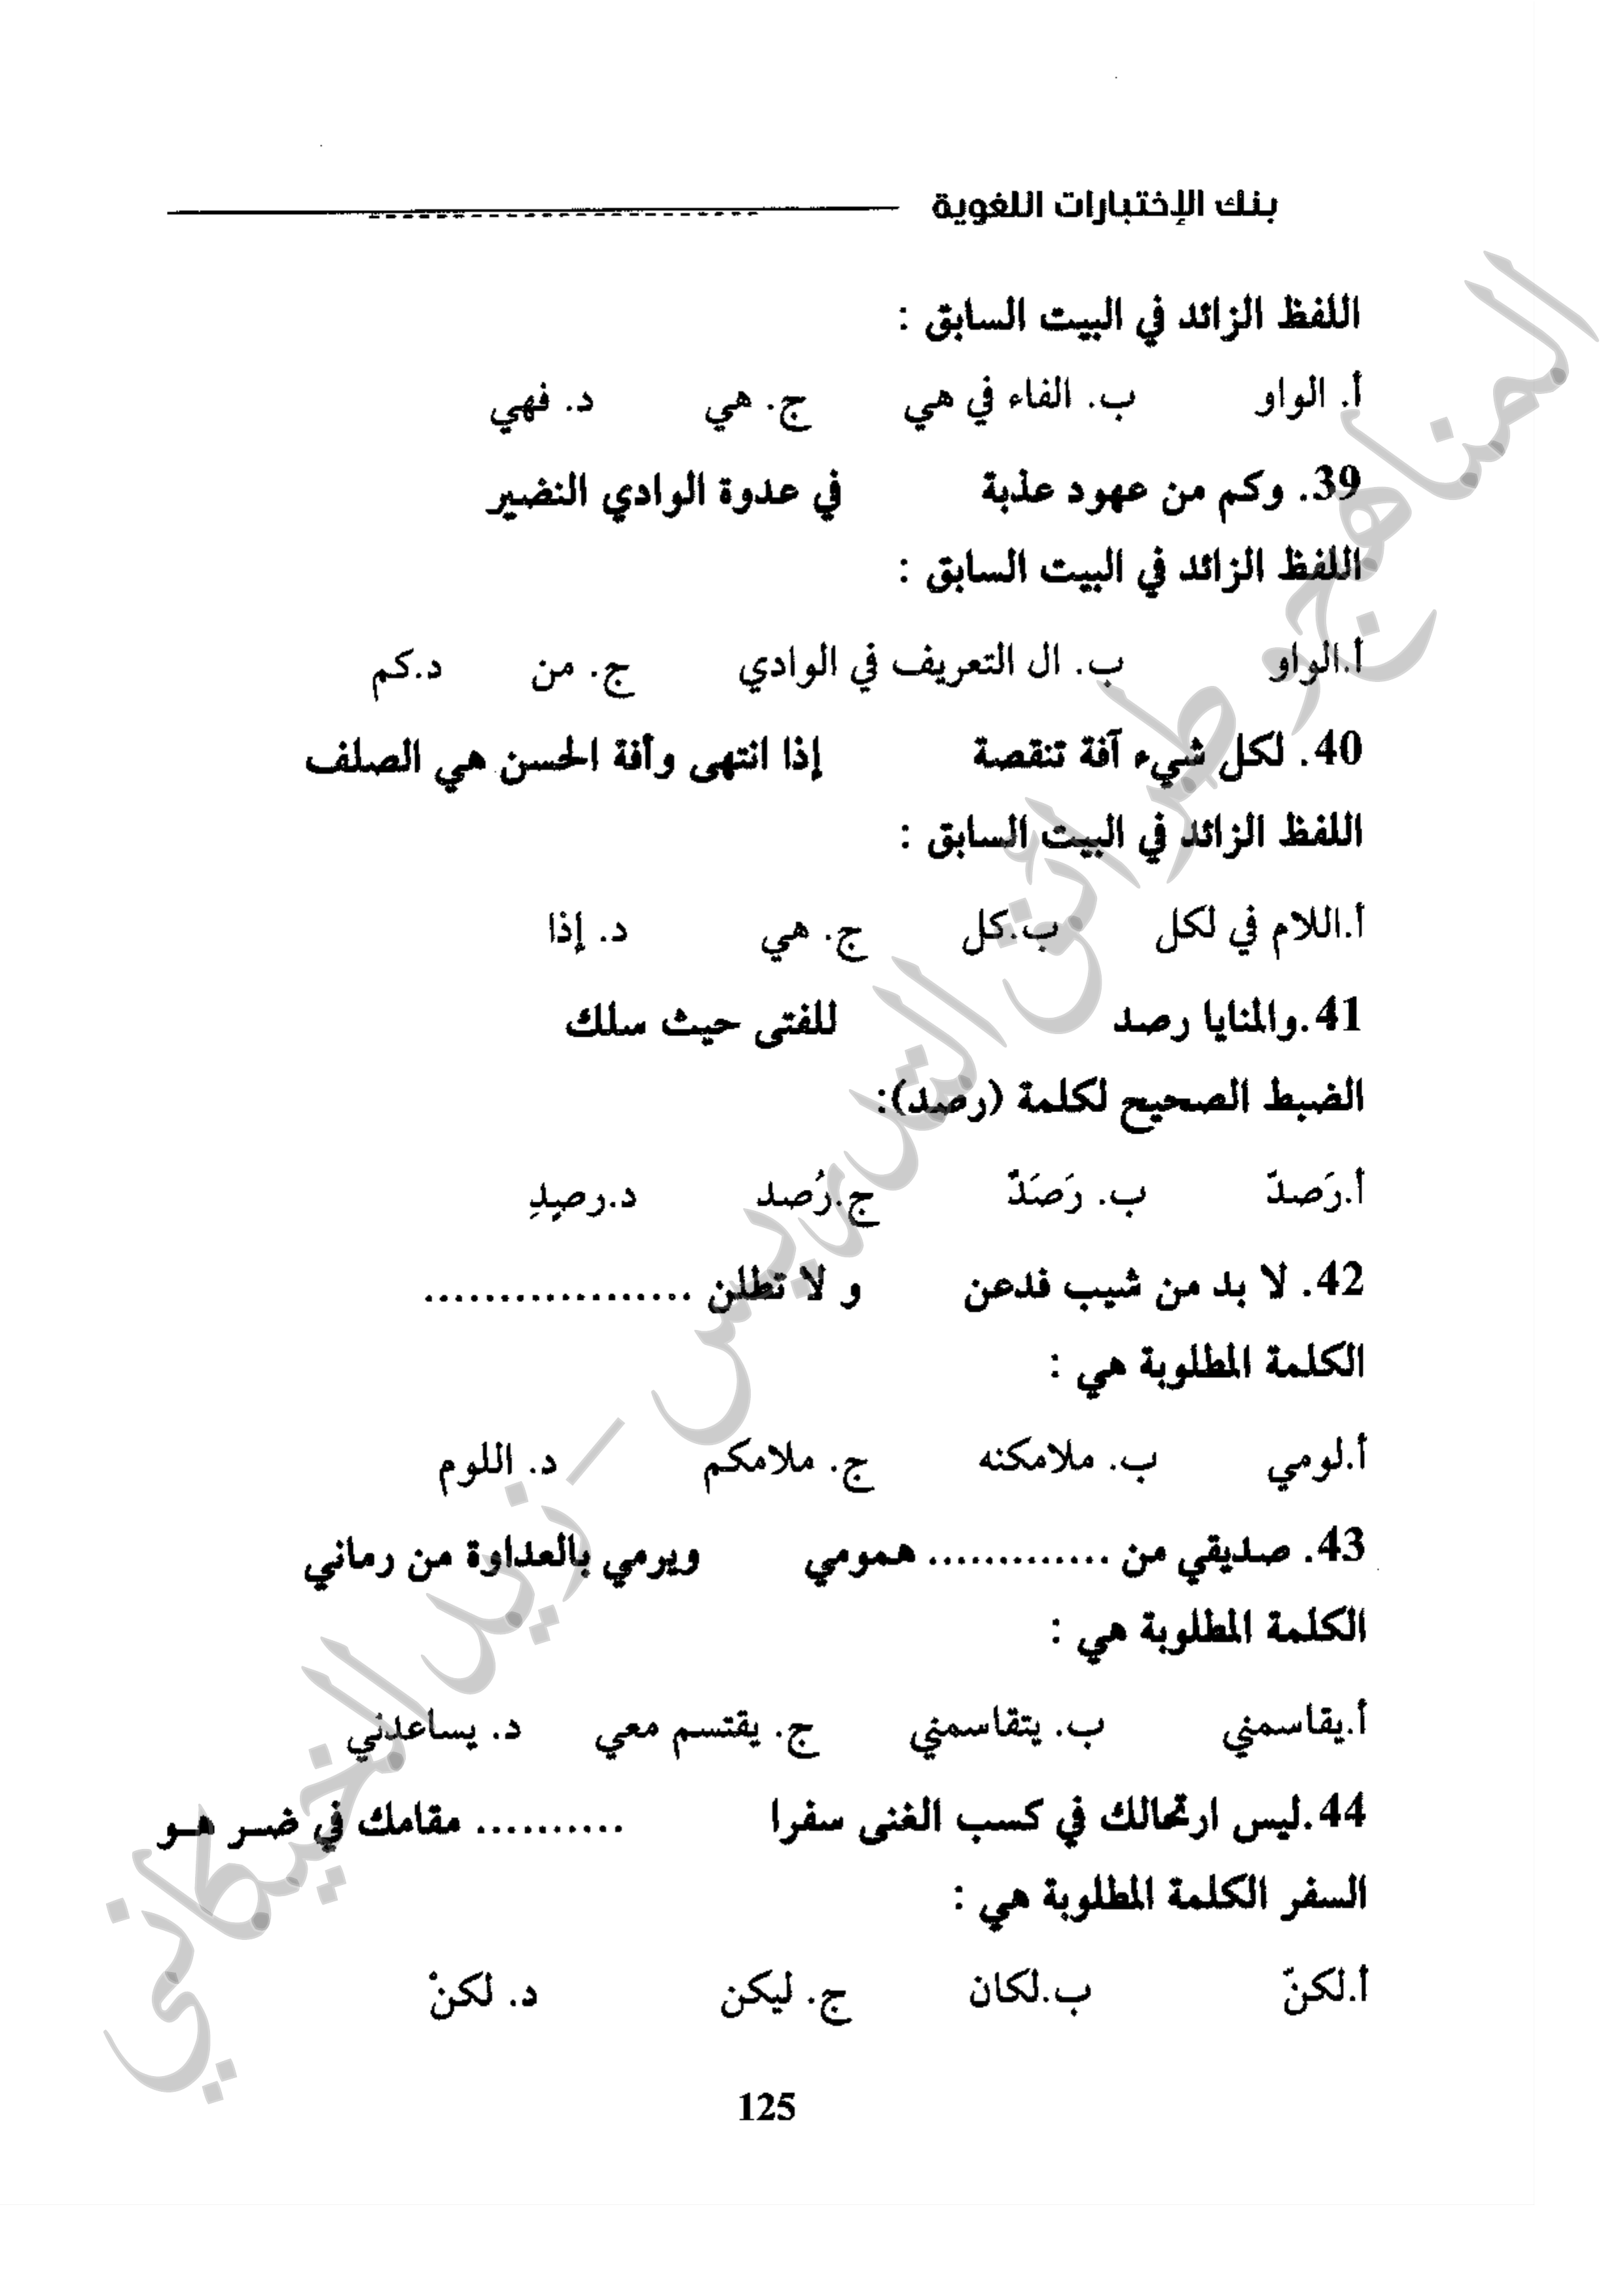 بنك الإختبارات اللغوية
اللفظ الزائد في البيت السابق :
أ. الواو ب. الفاء في هي ج. هي د. فهي
39. وكم من عهود عذبة في عدوة الوادي النضير
اللفظ الزائد في البيت السابق :
أ.الواو ب. ال التعريف في الوادي ج. من د.كم
40. لكل شيء آفة تنقصة إذا انتهى وأفة الحسن هي الصلف
اللفظ الزائد في البيت السابق :
أ.اللام في لكل ب.كل ج. هي د. إذا
41.والمنايا رصد للفتى حيث سلك
الضبط الصحيح لكلمة (رصد):
أ.رَصدّ ب. رَصَدٌ ج.رُصد د.رصيدِ
42. لا بد من شيب فدعن و لا تطلن ..................
الكلمة المطلوبة هي :
أ.لومي ب. ملامكنه ج. ملامكم د. اللوم
43. صديقي من ............. همومي ويرمي بالعداوة من رماني
الكلمة المطلوبة هي :
أ.يقاسمني ب. يتقاسمني ج. يقتسم معي د. يساعدني
44.ليس ارتحالك في كسب الغنى سفرا .......... مقامك في ضر هو
السفر الكلمة المطلوبة هي :
أ.لكنّ ب.لكان ج. ليكن د. لكنْ
125
المناهج وطرائق التدريس - زيد الخيكاني